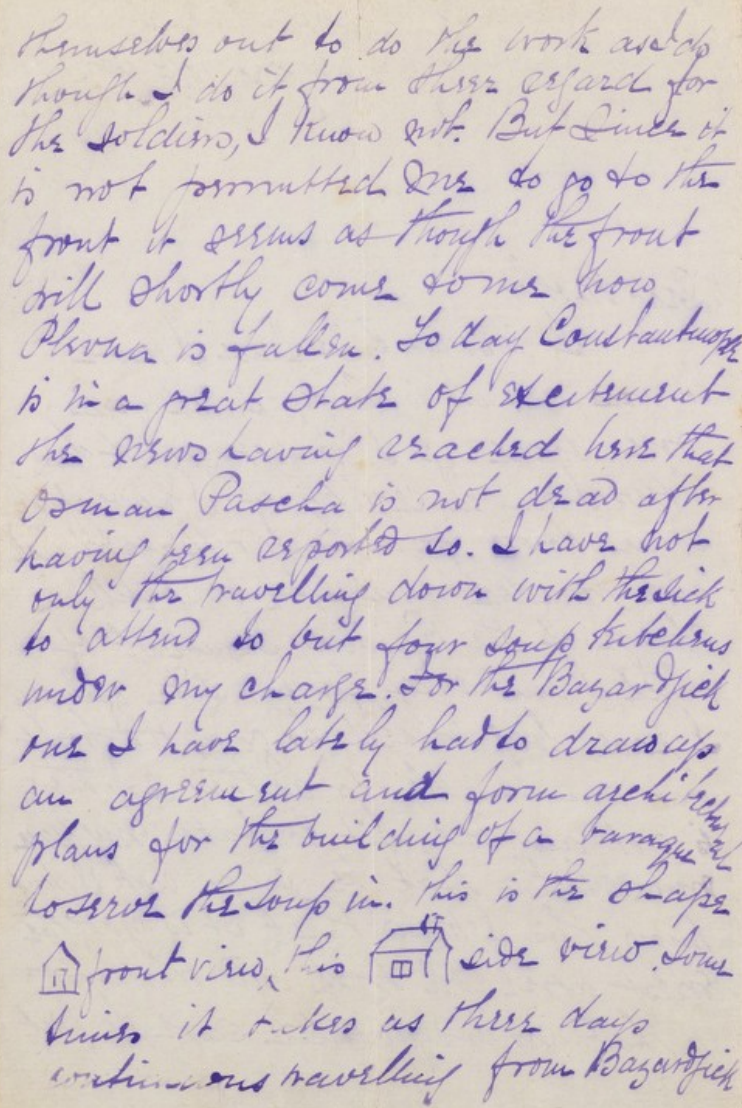 themselves out to do the work as I do
though I do it from sheer regard for
the soldiers, I know not. But since it
is not permitted me to go to the
front it seems as though the front
will shortly come to me now
Plevna is fallen. To day Constantinople
is in a great state of excitement
the news having reached here that
Osman Pascha is not dead after
having been reported so. I have not
only the travelling down with the sick
to attend to but four soup kitchens
under my charge. For the Bazardjick
one I have lately had to draw up
an agreement and form architectural
plans for the building of a baraque
to serve the soup in. this is the shape
front view, this side view. Some
times it takes as three days
continuous travelling from Bazardjick